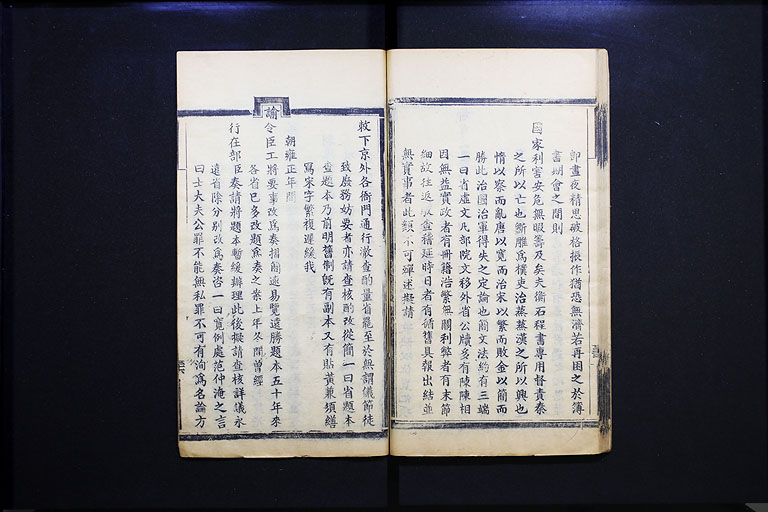 即晝夜精思破格振作猶恐無濟若再困之於簿
書期會之間則
國家利害安危無暇籌及矣夫衡石程書專用督責秦
之所以亡也斲雕為樸吏治蒸蒸漢之所以興也
惰以察而亂唐以寬而治宋以繁而敗金以簡而
勝此治國治軍得失之定論也簡文法約有三端
一曰省虛文凡部院文移外省公牘多有陳陳相
因無益實政者有冊籍浩繁無關利弊者有末節
細故往返駁查稽延時日者有循舊具報出結並
無實事者此類不可殫述擬請
敕下京外各衙門通行澈查酌量省罷至於無謂儀節徒
致廢務妨要者亦請查核酌改從簡一曰省題本
查題本乃前明舊制既有副本又有貼黃兼須繕
寫宋字繁複遲緩我
朝雍正年間
諭令臣工將要事改為奏摺簡速易覽遠勝題本五十年來
各省已多改題為奏之案上年冬間曾經
行在部臣奏請將題本暫緩辦理此後擬請查核詳議永
遠省除分別改為奏咨一曰寬例處范仲淹之言
曰士大夫公罪不能無私罪不可有洵為名論方